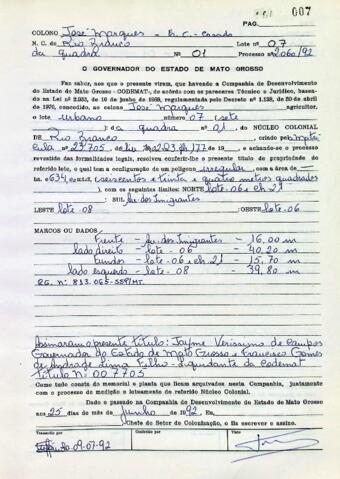 007
PAG.
COLONO José Marques - B.C. - Casado
N. C. de Rio Branco Lote nº 07
da quadra Nº 01 Processo nº 2060/92
O GOVERNADOR DO ESTADO DE MATO GROSSO
Faz saber, aos que o presente virem, que havendo a Companhia de Desenvolvimento
do Estado de Mato Grosso - CODEMAT-, de acordo com os pareceres Técnico e Jurídico, basea-
da na Lei nº 2.933, de 10 de junho de 1968, regulamentada pelo Decreto nº 1.138, de 30 de abril
de 1970, concedido, ao colono José Marques agricultor,
o lote urbano número 07 (sete
): da quadra nº 01. do NÚCLEO COLONIAL
DE Rio Branco, criado pela
23.705 177 de 19 e achando-se o processo
revestido das formalidades legais, resolveu conferir-lhe o presente título de propriedade do
referido lote, o qual tem a configuração de um polígono irregular com a área de
634, m2 (seiscentos e trinta e quatro metros quadrados
), com os seguintes limites: NORTE lote-06 e ch 21
: SUL Av. dos Imigrantes
LESTE lote-08 : OESTE lote-06
MARCOS OU DADOS:
Frente - Av. dos Imigrantes - 16,00 m
lado direito - lote-06 - 40,20 m
fundos - lote-06 e ch. 21 - 15,70 m
lado esquerdo - lote-08 - 39,80 m
RG. nº 833.065-SSP/MT.
Assinaram o presente título: Jayme Verissimo de Campos
Governador do Estado de Mato Grosso e Francisco Gomes
de Andrade Lima Filho - Liquidante da Codemat
Título nº 007705
Como tudo consta do memorial e planta que ficam arquivados nesta Companhia, juntamente
com o processo de medição e loteamento do referido Núcleo Colonial.
Dado e passado na Companhia de Desenvolvimento do Estado de Mato Grosso
aos 25 dias do mês de junho de 1992. Eu,
Chefe do Setor de Colonização, o fiz escrever e assino.
Transcrito por Conferido por Visto
20-07-92